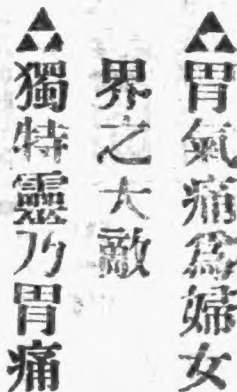 ▲胃氣痛爲婦女
界之大敵
▲獨特靈乃胃痛